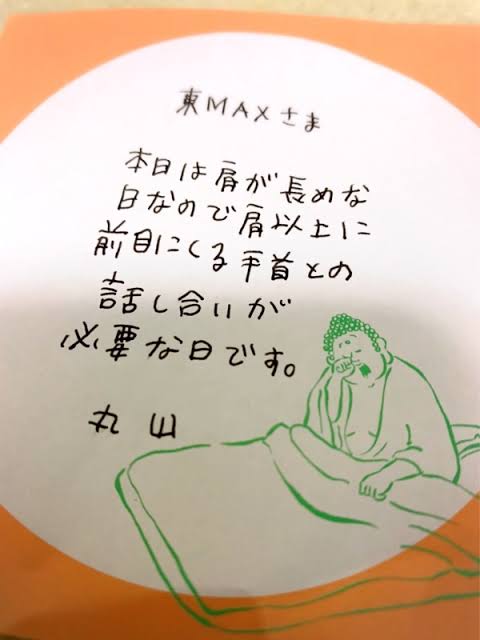 東MAXさま
本日は肩が長めな
日なので肩以上に
前目にくる手首との
話し合いが
必要な日です。
丸山